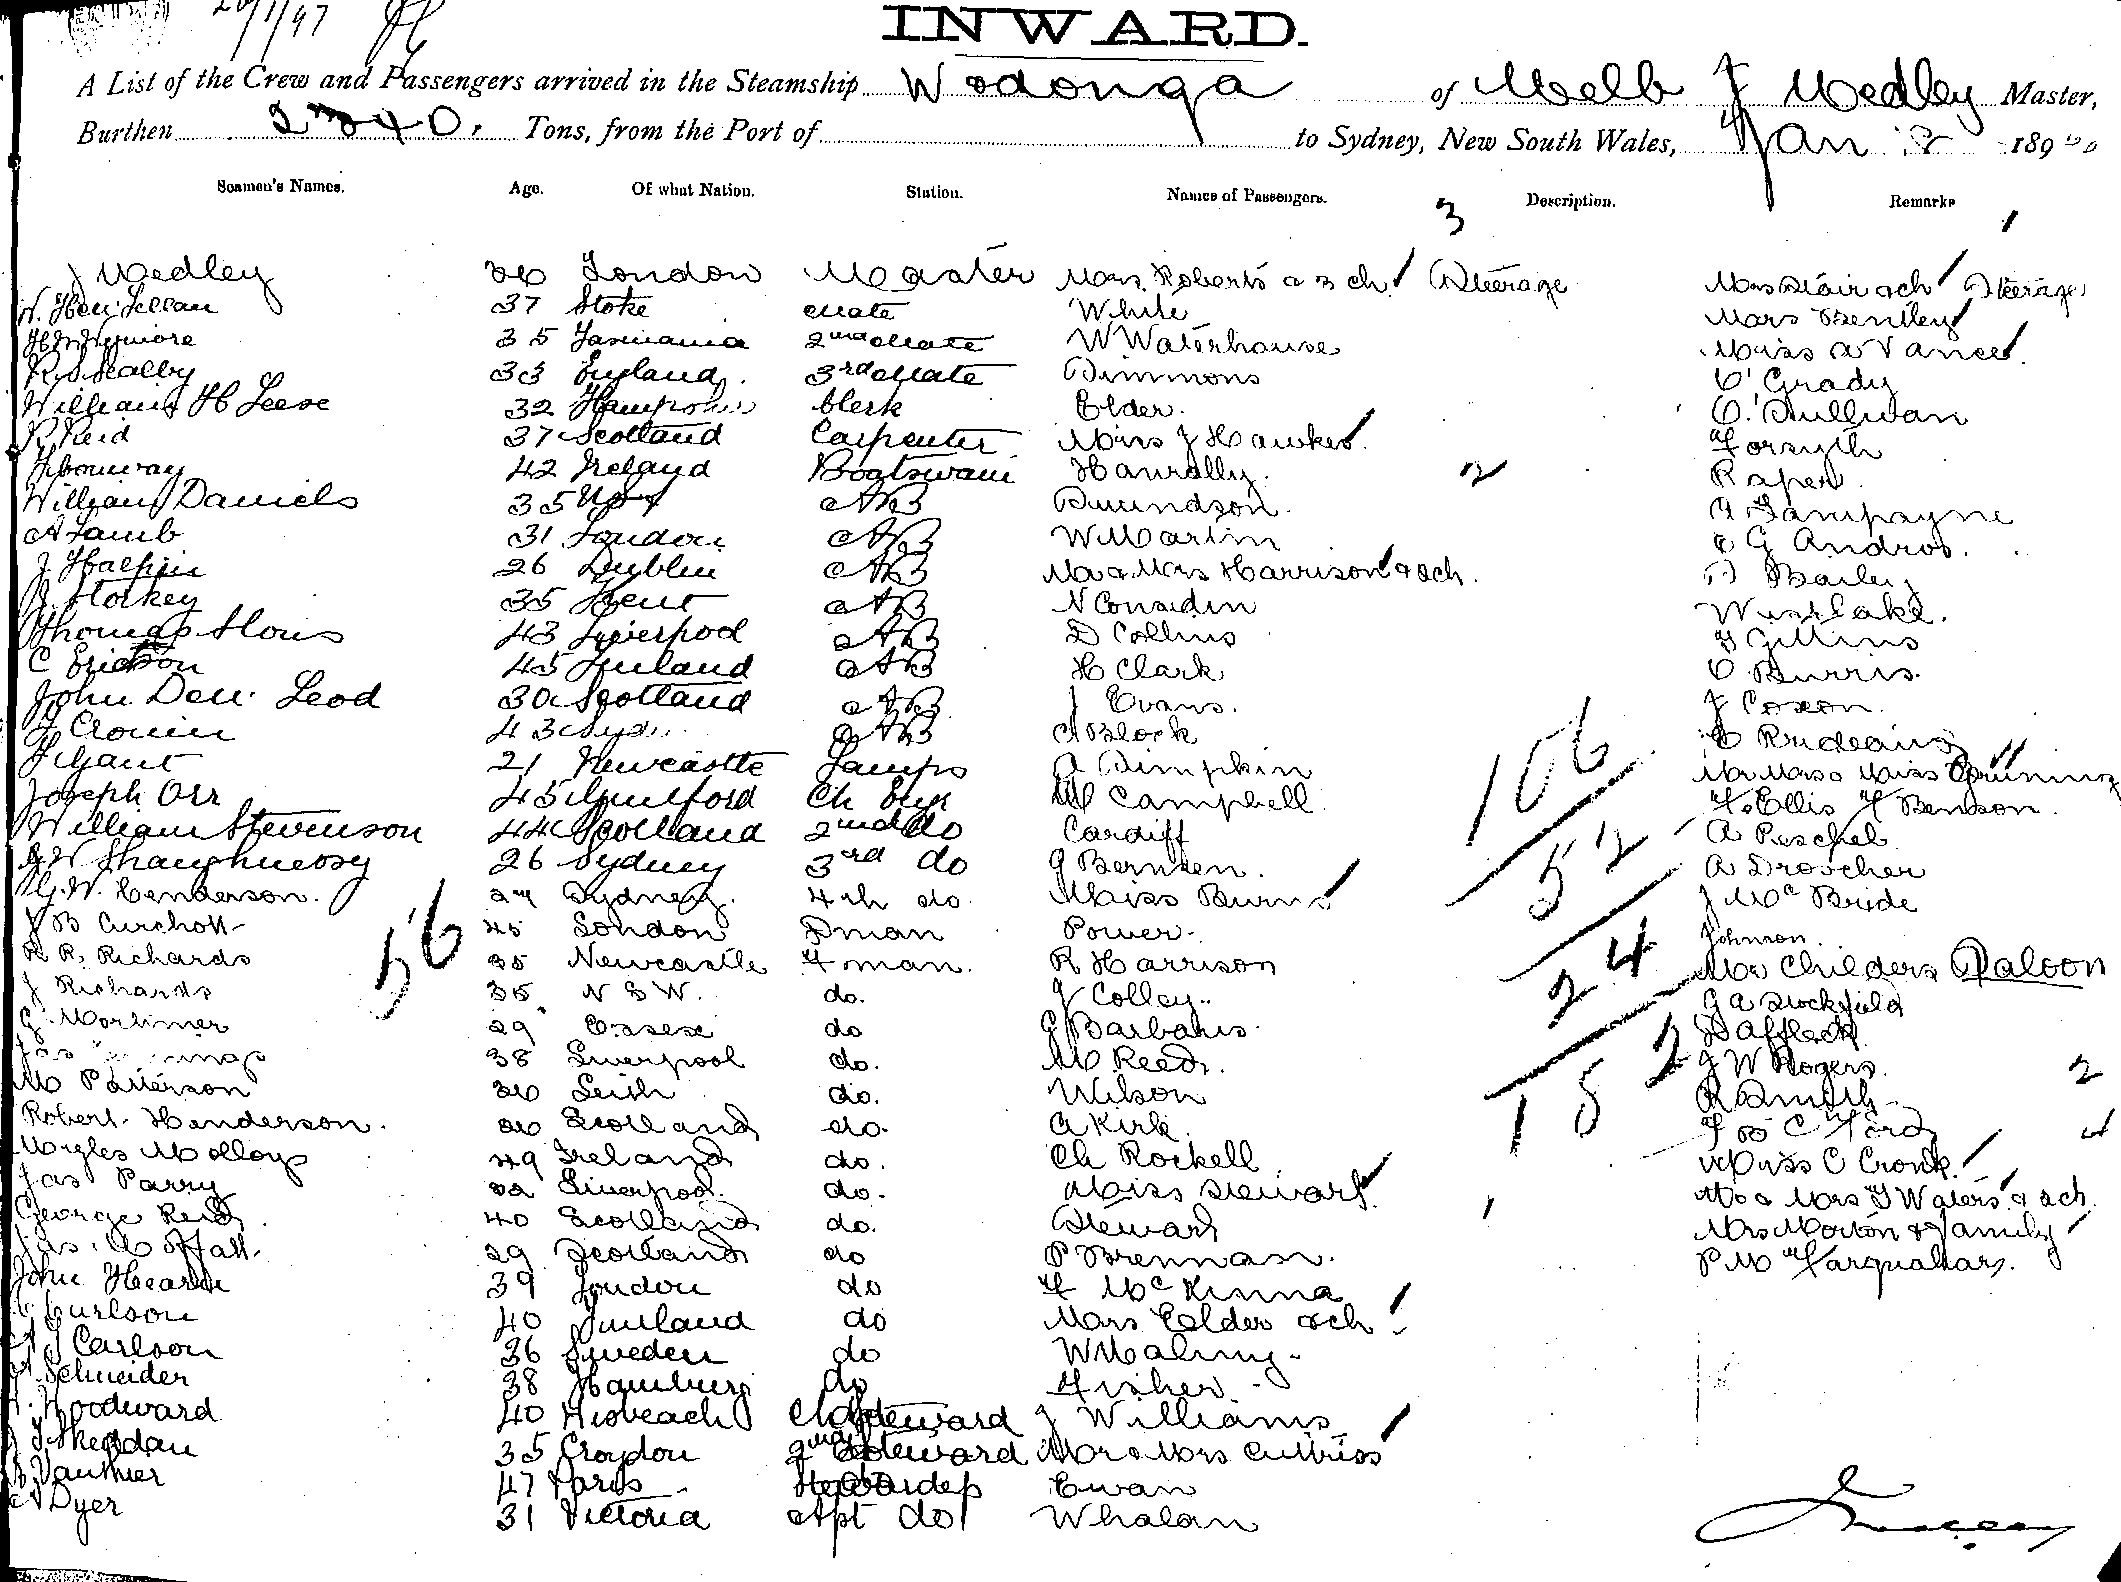 20/1/97
INWARD.
A List of the Crew and Passengers arrived in the Steamship Wodonga of Melb J Medley Master,
Burthen Tons, from the Port of to Sydney, New South Wales, Jan 189
Seamen's Names. Age. Of what Nation. Station. Names of Passengers. Description. Remarks
3 1
J Medley London Master Mrs Roberts a 3 ch Steerage Mrs Blair & ch Steerage
37 Stoke Mate White Mrs Bentley
35 Tasmania 2nd Mate W Waterhouse Miss A Vance
33 England 3rd Mate Simmons O'Grady
William H Leese 32 Hampshire Clerk Elder O'Sullivan
R Reid 37 Scotland Carpenter Miss J Hawkes Forsyth
J Conway 42 Ireland Boatswain Hanrally 2 Raper
William Daniels 35 AB
A Lamb 31 London AB W Martin G Andros
J Halpin 26 Dublin AB Mr & Mrs Harrison & ch. Bailey
Storkey 35 Kent AB N Considin Westlake
Thomas 43 Liverpool AB D Collins Gillins
C Ericson 45 Finland AB H Clark Burris
John Leod 30 Scotland AB J Evans J Coxon
J Cronin 43 Syd AB A Block
J Gant 21 Newcastle Lamps A Simpkin Mr Mrs & Miss
Joseph Orr 45 Guilford Ch Eng M Campbell F Ellis F Benson
William Stevenson 44 Scotland 2nd do Cardiff A Peschel
Shaughnessy 26 Sydney 3rd do J Bernsen A Droscher
G. W. Henderson Sydney 4th do Miss Burns J McBride
J B 45 London Dman Power Johnson
R R. Richards 35 Newcastle Fman R Harrison Mr Childers Saloon
J Richards 35 N S W. do. J Colley G A Stockfield
G Mortimer 29 Essex do G Barbaris Affleck
Jas 38 Liverpool do. M Reed J W Rogers 2
M Patterson Leith do. Wilson R Smith
Robert Henderson Scotland do. A Kirk C Ford
Myles Molloy 49 Ireland do. Ch Rockell Miss C Cronk
Jas Parry Liverpool do. Miss Stewart Mr & Mrs J Waters & ch
George Reid 40 Scotland do. Stewart Mrs Morton & Family
Jas. Moffatt 29 Scotland do P Brennan P M Farquahars
John Hearn 39 London do F McKinna
Carlson 40 Finland do Mrs Elder & ch
J Carlson 36 Sweden do W Maling
Schneider 38 Hamburg do Fisher
Woodward 40 Wisbeach Ch Steward J Williams
Skeddan 35 Croydon 2nd Steward Mr & Mrs Cuttriss
Vauthier 47 Paris Stewardess Ewan
Dyer 31 Victoria Apt do Whalan
56
106
52
24
182